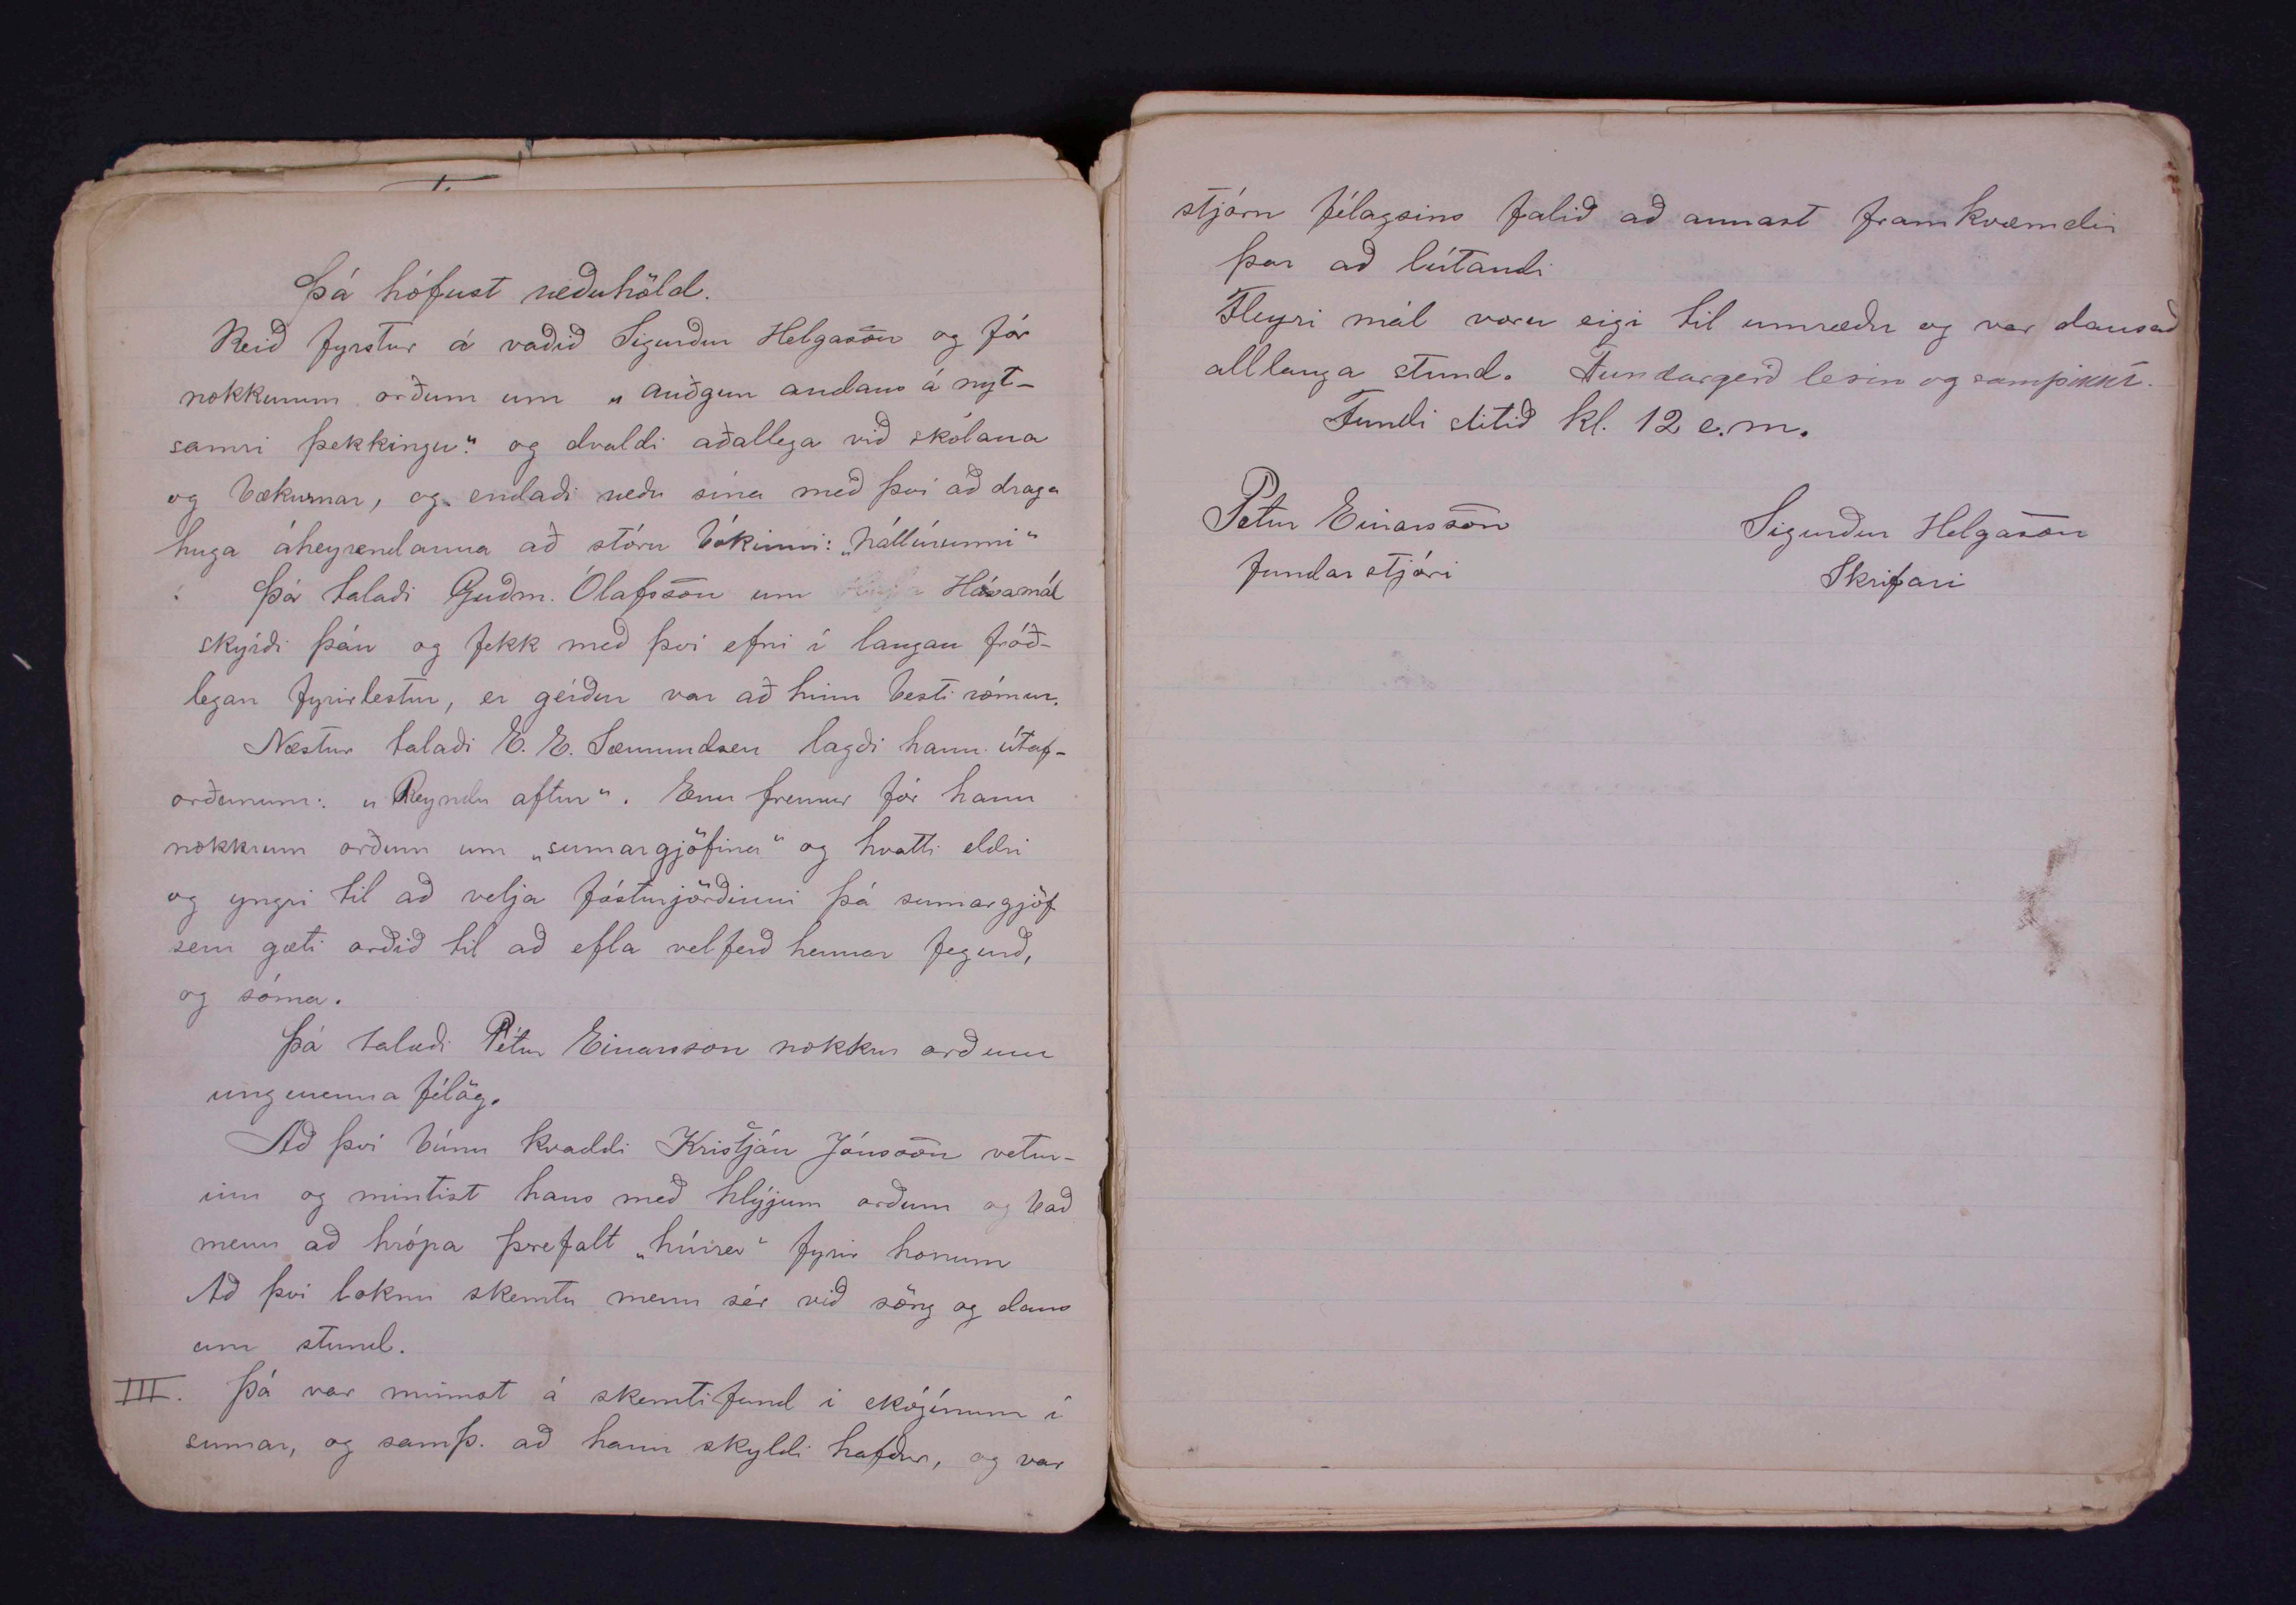 Þá hófust ræðuhöld.
Reið fyrstur á vaðið Sigurður Helgason og fór
nokkurum orðum um „auðgun andans á nyt-
samri þekkingu“ og dvaldi aðallega við skólana
og bækurnar, og endaði ræðu sína með því að draga
huga áheyrendanna að stóru bókinni: „náttúrunni“
Þá talaði Guðm. Ólafsson um Hávamál
skýrði þáu og fekk með því efni í langan fróð-
legan fyrirlestur, er gerður var að hinn besti rómur.
Næstur talaði E. E. Sæmundsen lagði hann útaf-
orðunum: „Reyndu aftur“. Enn fremur fór hann
nokkrum orðum um „sumargjöfina“ og hvatti eldri
og yngri til að velja fósturjörðinni þá sumargjöf
sem gæti orðið til að efla velferð hennar fegurð,
og sóma.
Þá talaði Pétur Einarsson nokkur orð um
ungmennafélög.
Að því búnu kvaddi Kristján Jónsson vetur-
inn og mintist hans með hlýjum orðum og bað
menn að hrópa þrefalt „húrra“ fyrir honum
Að því loknu skemtu menn sér við söng og dans
um stund.
III. Þá var minnst á skemtifund í skóginum í
sumar, og samþ. að hann skyldi hafður, og var
stjórn félagsins falið að annast framkvæmdir
þar að lútandi
Fleyri mál voru eigi til umræðu og var dansað
alllanga stund. Fundargerð lesin og samþikkt.
Fundi slitið kl. 12 e.m.
Pétur Einarsson
fundarstjóri
Sigurður Helgason
Skrifari